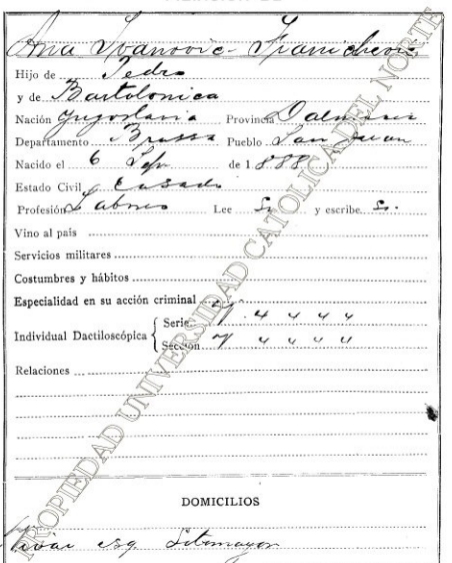 Ana Ivanovic - Franichevic
Hijo de Pedro
y de Bartolomica
Nación Yugoslavia Provincia Dalmasia
Departamento Brassa Pueblo San Juan
Nacido el 6 Sep de 1888
Estado Civil Casado
Profesión Labores Lee Si y escribe Si.
Vino al país
Servicios militares
Costumbres y hábitos
Especialidad en su acción criminal
Individual Dactiloscópica { Serie V 4 4 4 4
Sección V 4 4 4 4
Relaciones
DOMICILIOS
esq Sotomayor
PROPIEDAD UNIVERSIDAD CATOLICA DEL NORTE